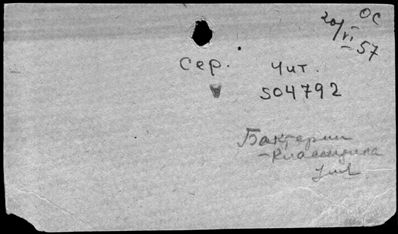 ОС
20/VI 57
Сер. Чит.
504792
Бактерии